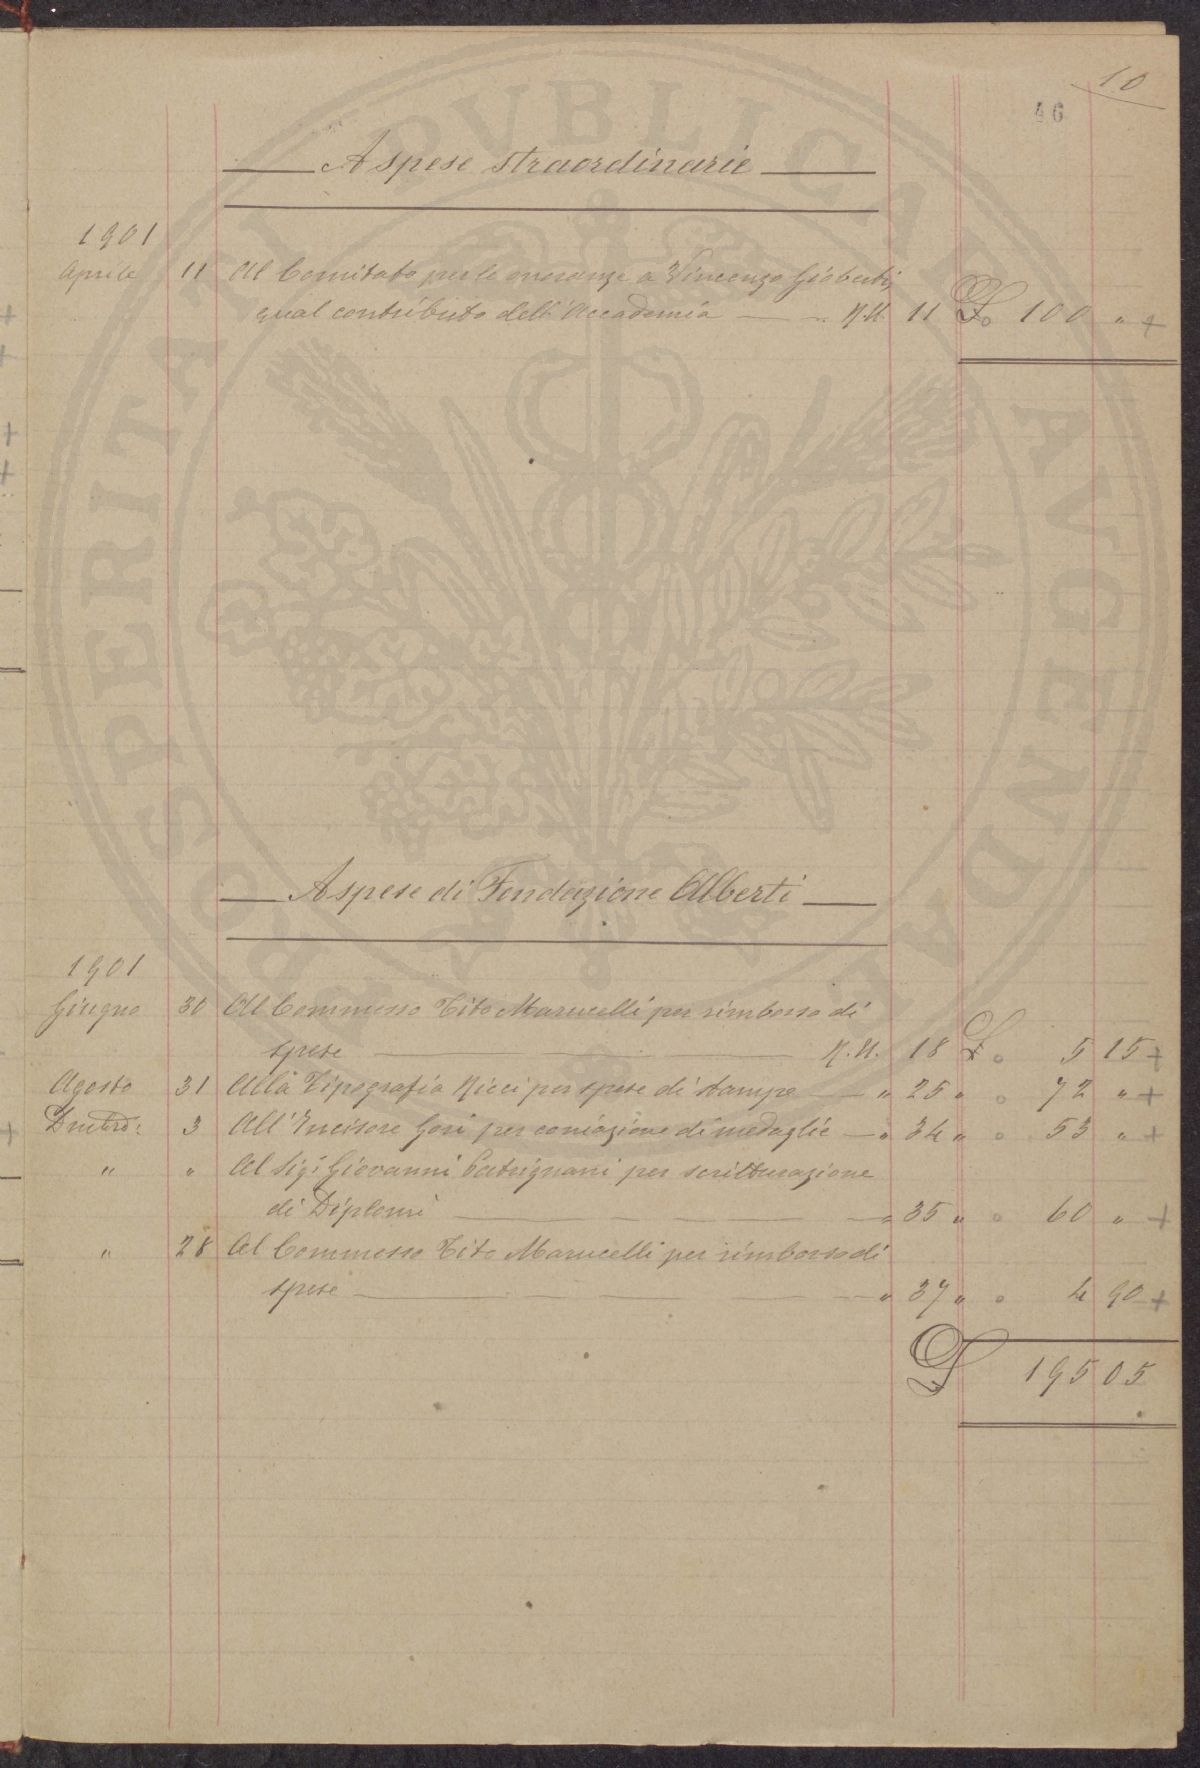 10
46
A spese straordinarie
1901
Aprile 11 Al Comitato per le onoranze a Vincenzo Gioberti,
qual contributo dell'Accademia N.U. 11 L. 100 " +
A spese di Fondazione Alberti
1901
Giugno 30 Al Commesso Tito Marucelli per rimborso di
spese N.U. 18 L. 5 15 +
Agosto 31 Alla Tipografia Ricci per spese di stampe " 25 " 72 " +
3 All'Incisore Gori per coniazione di medaglie " 34 " 53 " +
" " Al Sig. Giovanni Patrignani per scritturazione
di Diplomi " 35 " 60 " +
" 28 Al Commesso Tito Marucelli per rimborso di
spese " 37 " 4 90 +
L 195 05
PROSPERITATI PVBLICAE AVGENDAE